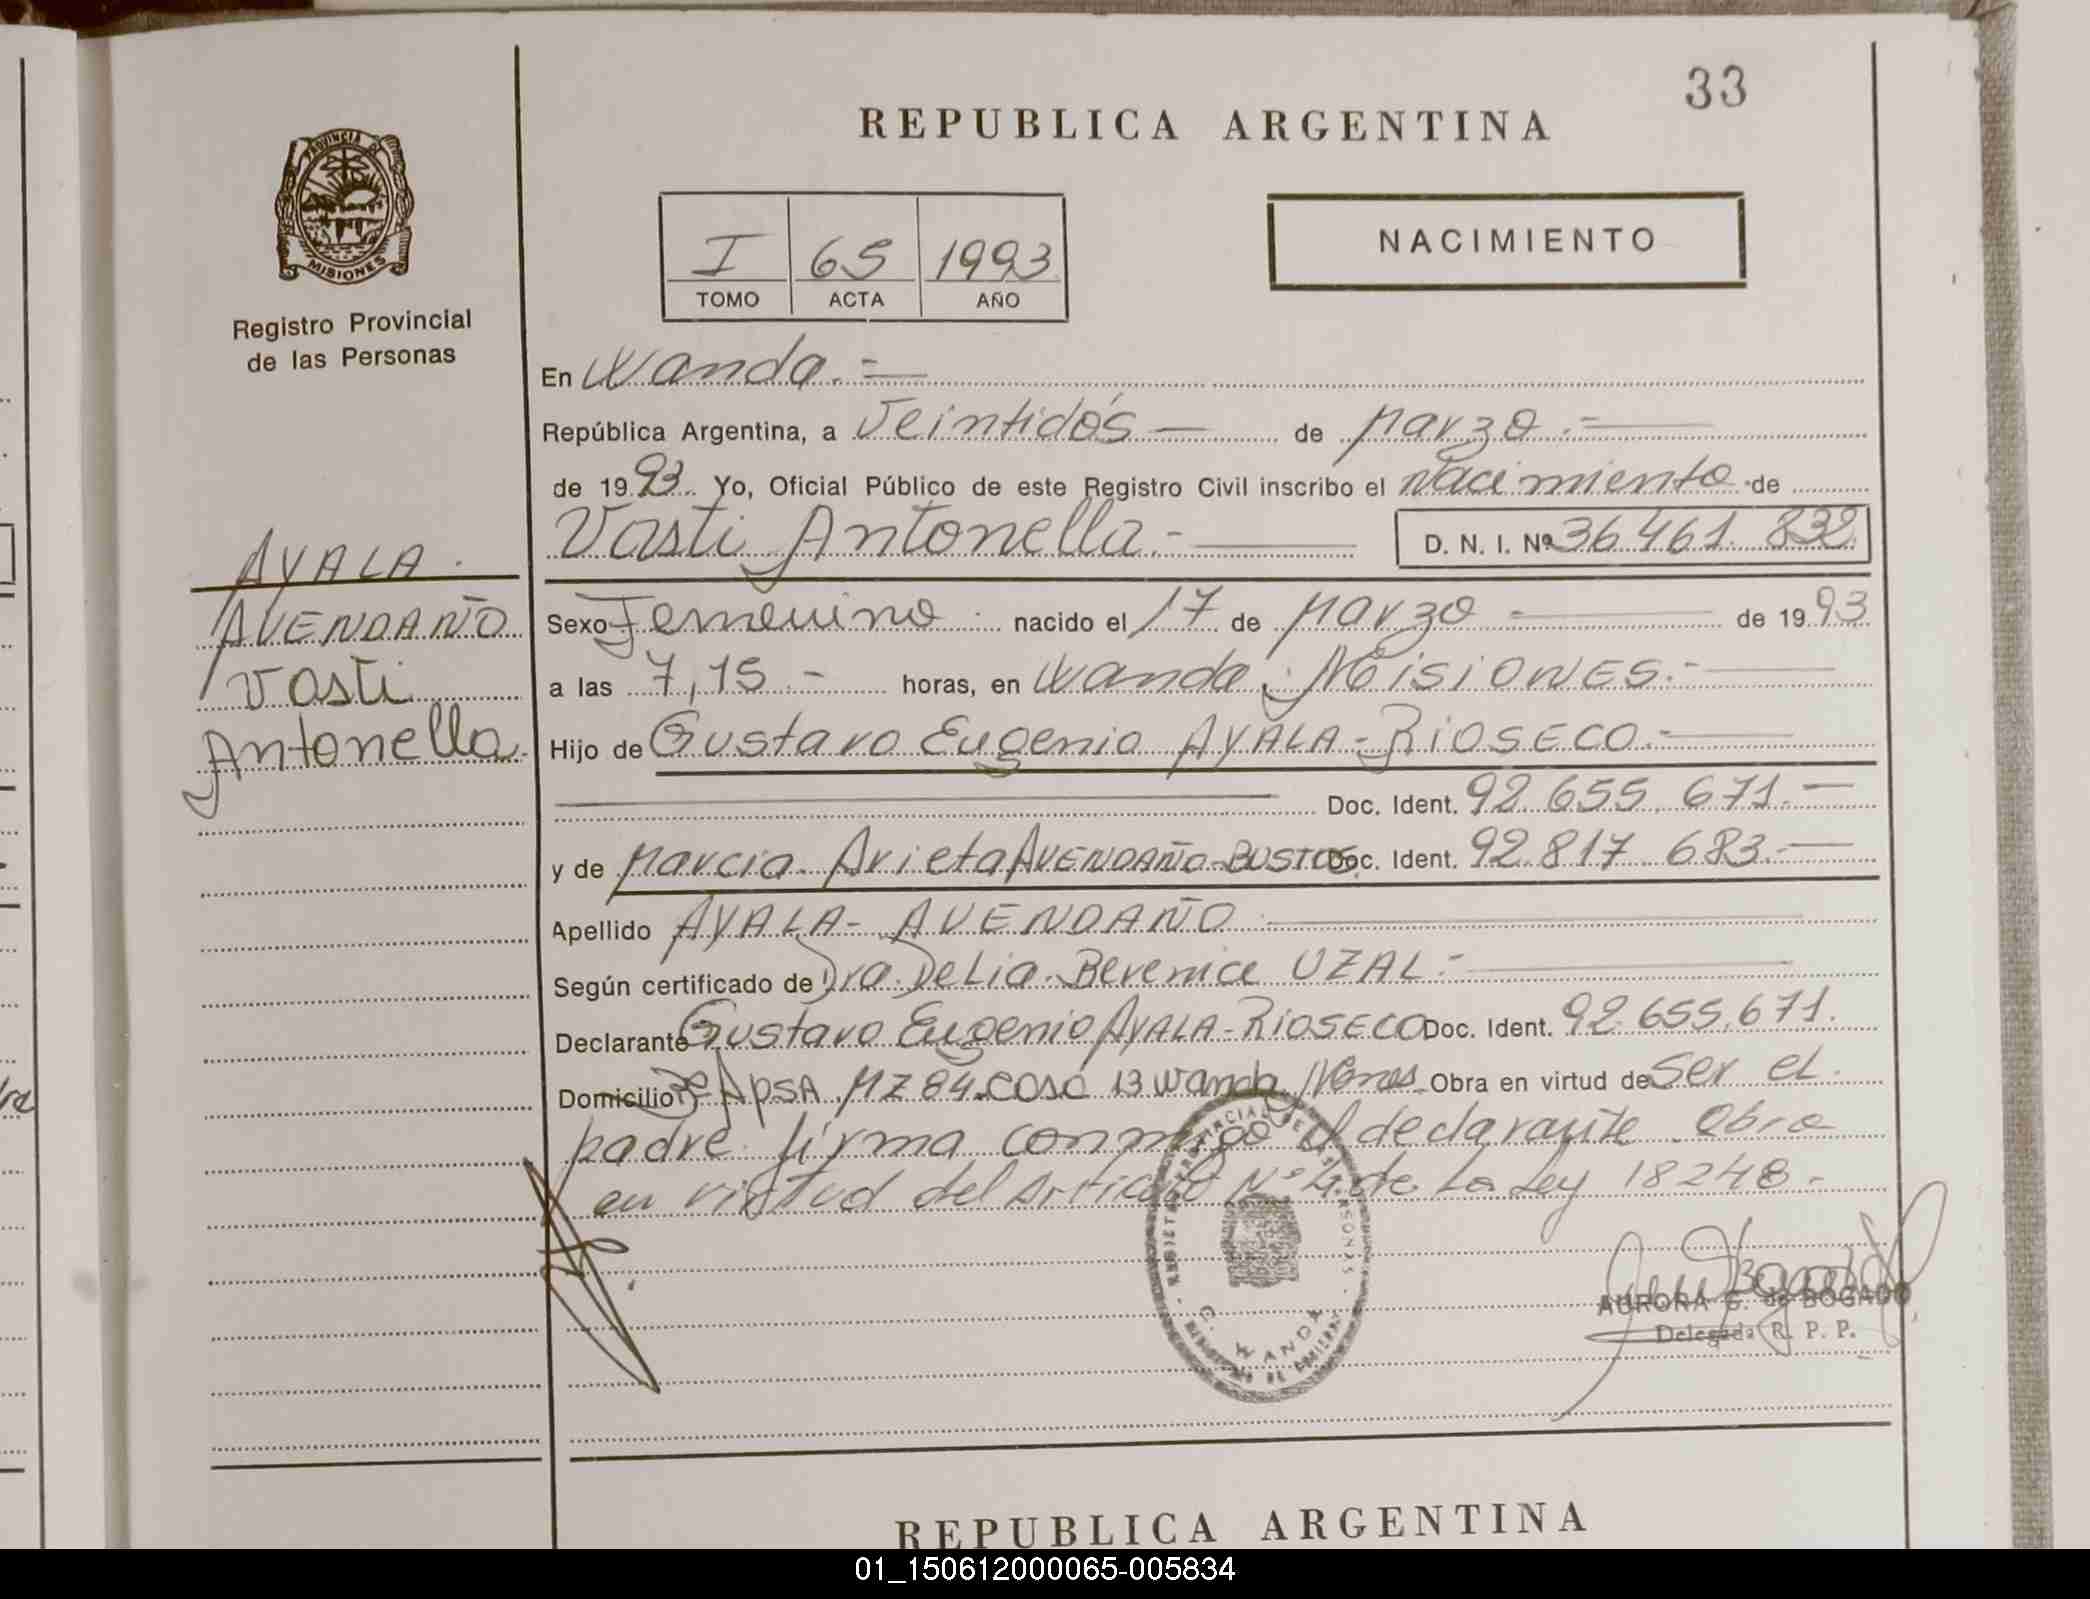 33
REPUBLICA ARGENTINA
PROVINCIA DE
MISIONES
Registro Provincial
de las Personas
I 65 1993
TOMO ACTA AÑO
NACIMIENTO
En Wanda.=
República Argentina, a Veintidós — de Marzo.=
de 1993. Yo, Oficial Público de este Registro Civil inscribo el nacimiento de
Vasti Antonella.- D. N. I. Nº 36 461. 832.
AYALA.
AVENDAÑO
Vasti
Antonella.
Sexo Femenino. nacido el 17 de Marzo — de 1993
a las 7,15.- horas, en Wanda, MisiONES.-
Hijo de Gustavo Eugenio AYALA-RiOSECO.-
Doc. Ident. 92.655.671.—
y de Marcia Arieta AVENDAÑO-BUSTOS Doc. Ident. 92.817 683.—
Apellido AYALA- AVENDAÑO
Según certificado de Dra. Delia Berenice UZAL.-
Declarante Gustavo Eugenio AYALA-RiOSECO Doc. Ident. 92.655.671.
Domicilio ApSA MZ 84 casa 13 Wanda Mnes. Obra en virtud de Ser el
padre. firma conmigo el declarante. Obra
en virtud del Articulo Nº 4 de La Ley 18248.-
WANDA
AURORA G. de BOGADO
Delegada R. P. P.
REPUBLICA ARGENTINA
01_150612000065-005834